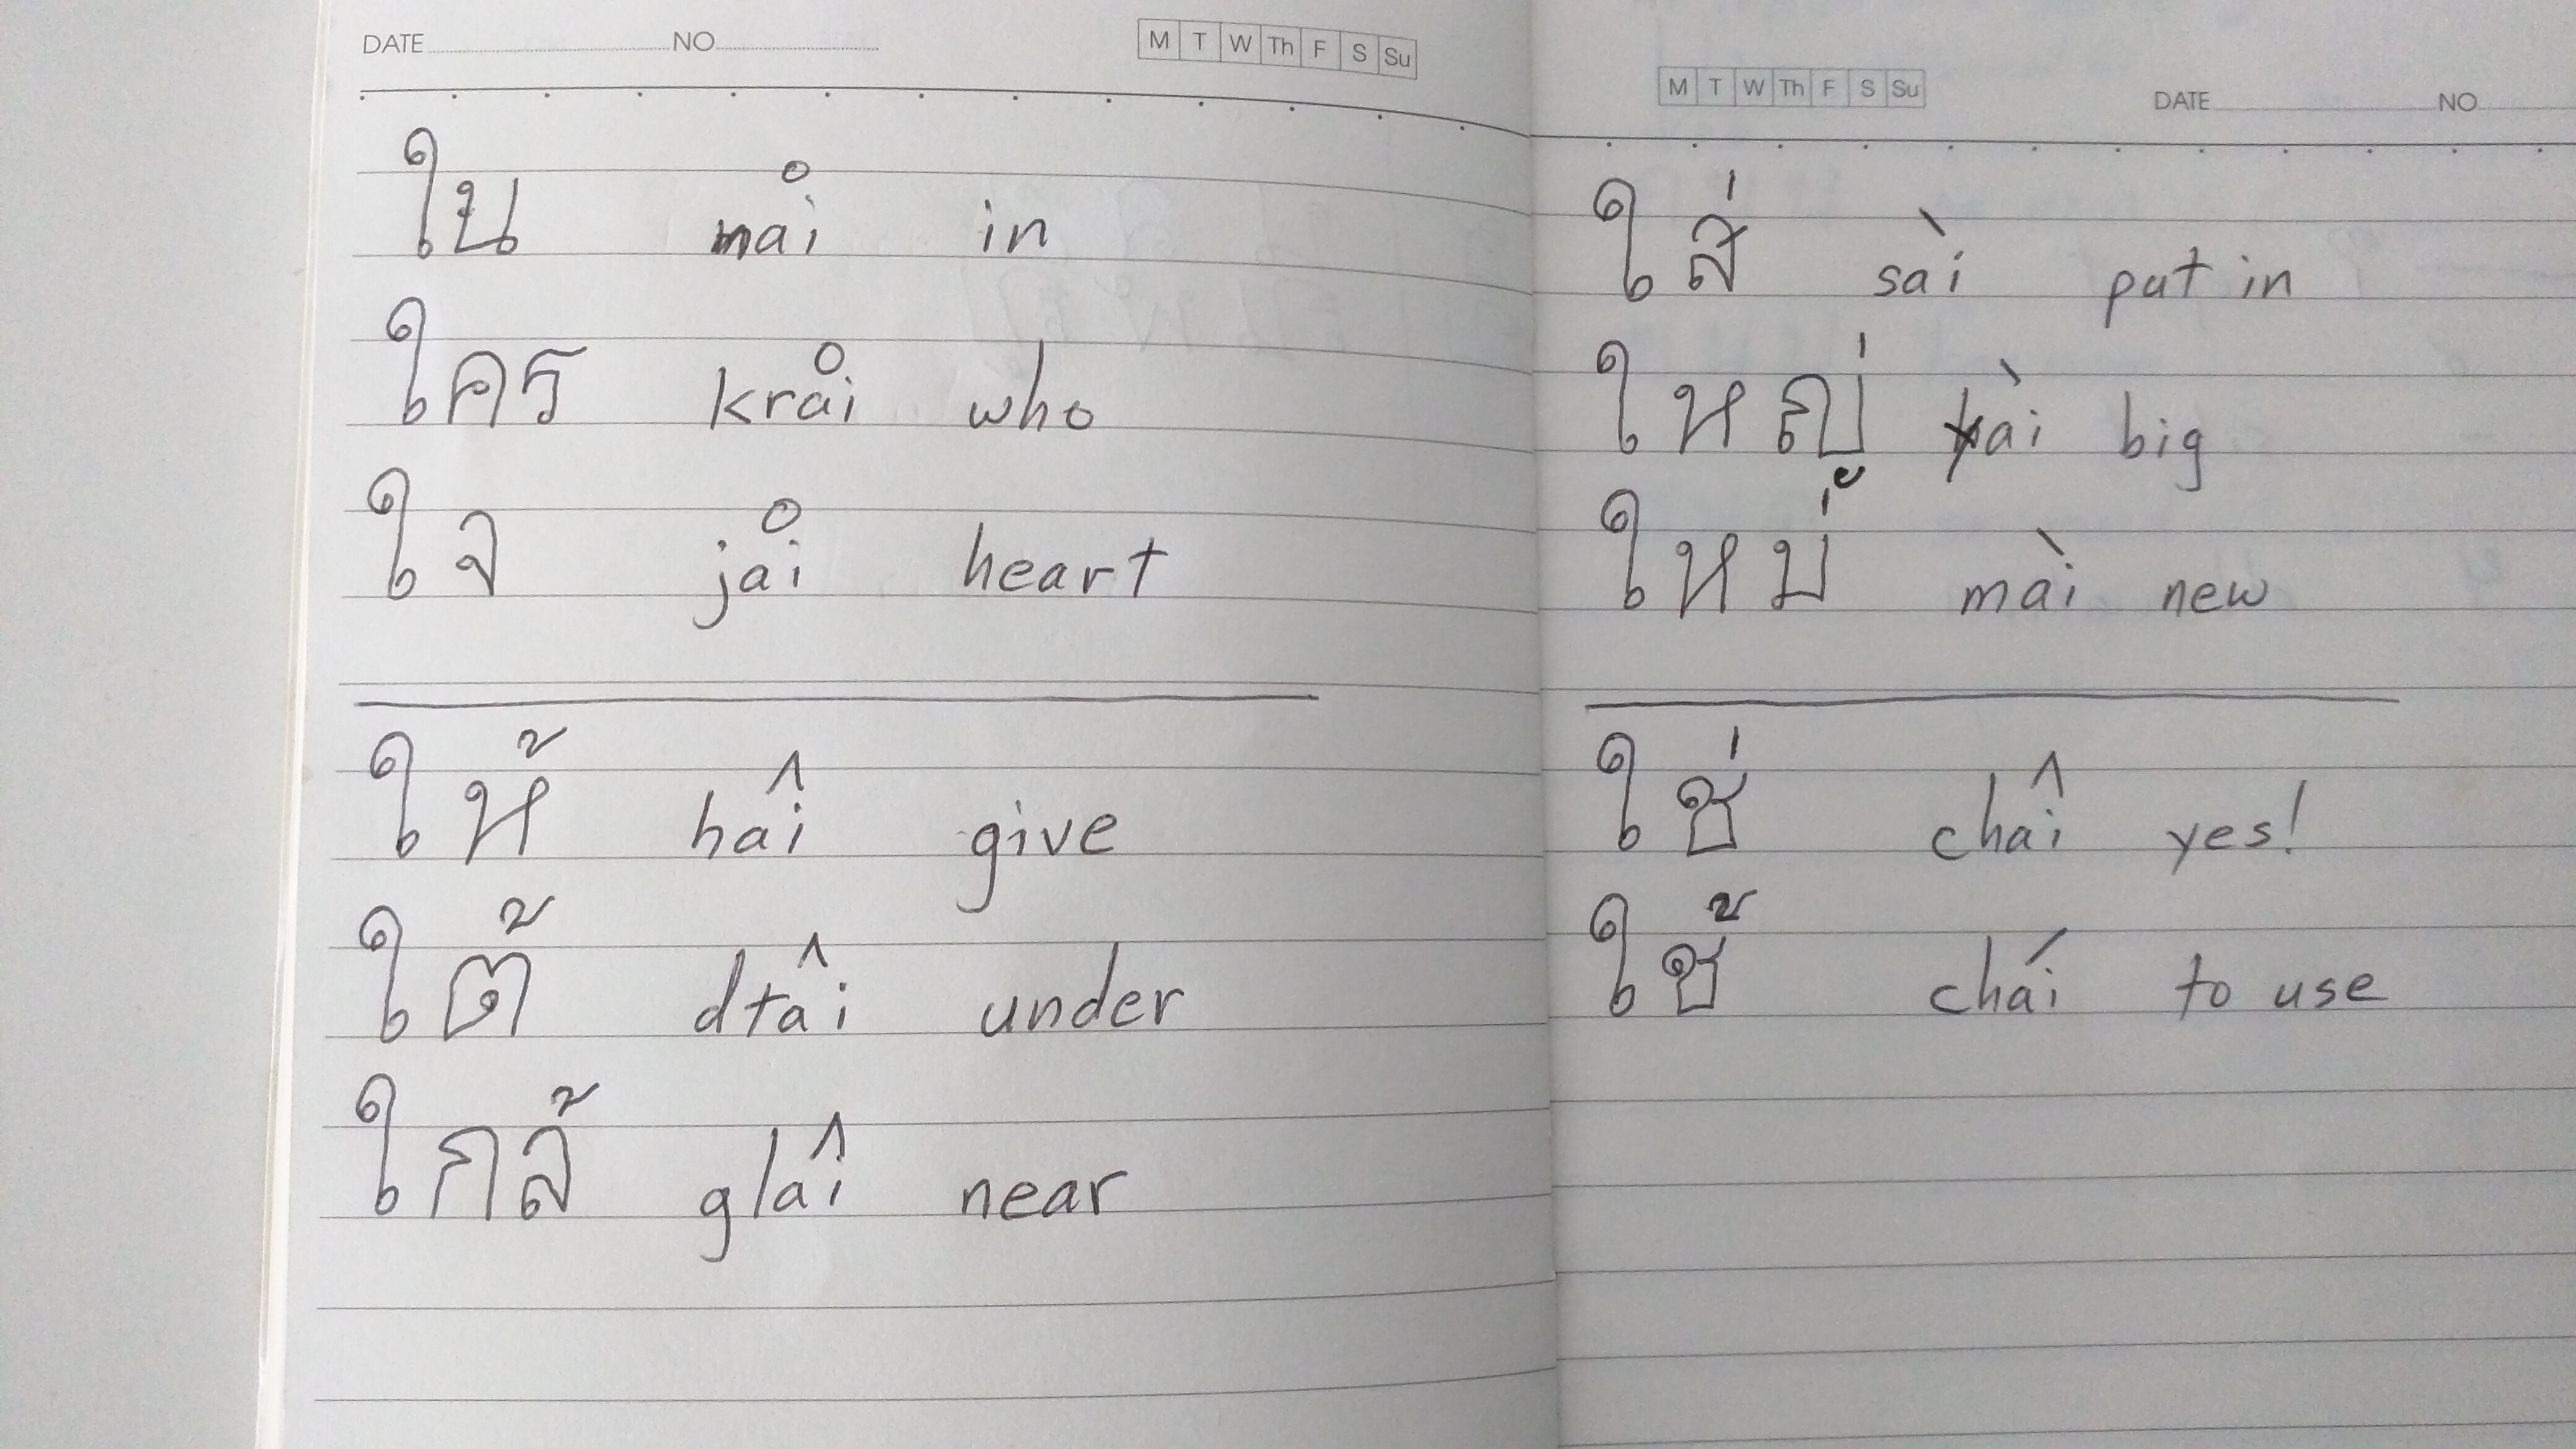 DATE NO M T W Th F S Su
ใน nåi in
ใคร kråi who
ใจ jåi heart
ให้ hâi give
ใต้ dtâi under
ใกล้ glâi near
M T W Th F S Su DATE NO
ใส่ sài put in
ใหญ่ yài big
ใหม่ mài new
ใช่ châi yes!
ใช้ chái to use